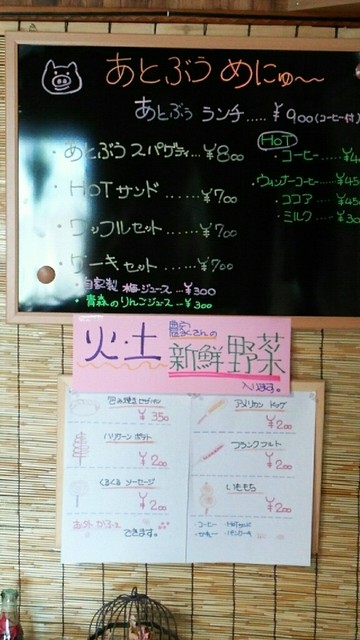 あとぶぅ めにゅ〜
あとぶぅ ランチ.....¥900(コーヒー付)
あとぶう スパゲティ...¥800
HoTサンド......¥700
ワッフルセット......¥700
ケーキセット......¥700
自家製 梅ジュース...¥300
青森のりんごジュース...¥300
HoT
コーヒー....¥4
ウィンナーコーヒー...¥45
ココア...¥45
ミルク...¥30
火・土 農家さんの
新鮮野菜
入ります。
¥350
ハリケーンポテト
¥200
くるくる ソーセージ
¥200
お外 かふぇ
できます。
アメリカン ドッグ
¥200
フランクフルト
¥200
いももち
¥200
コーヒー